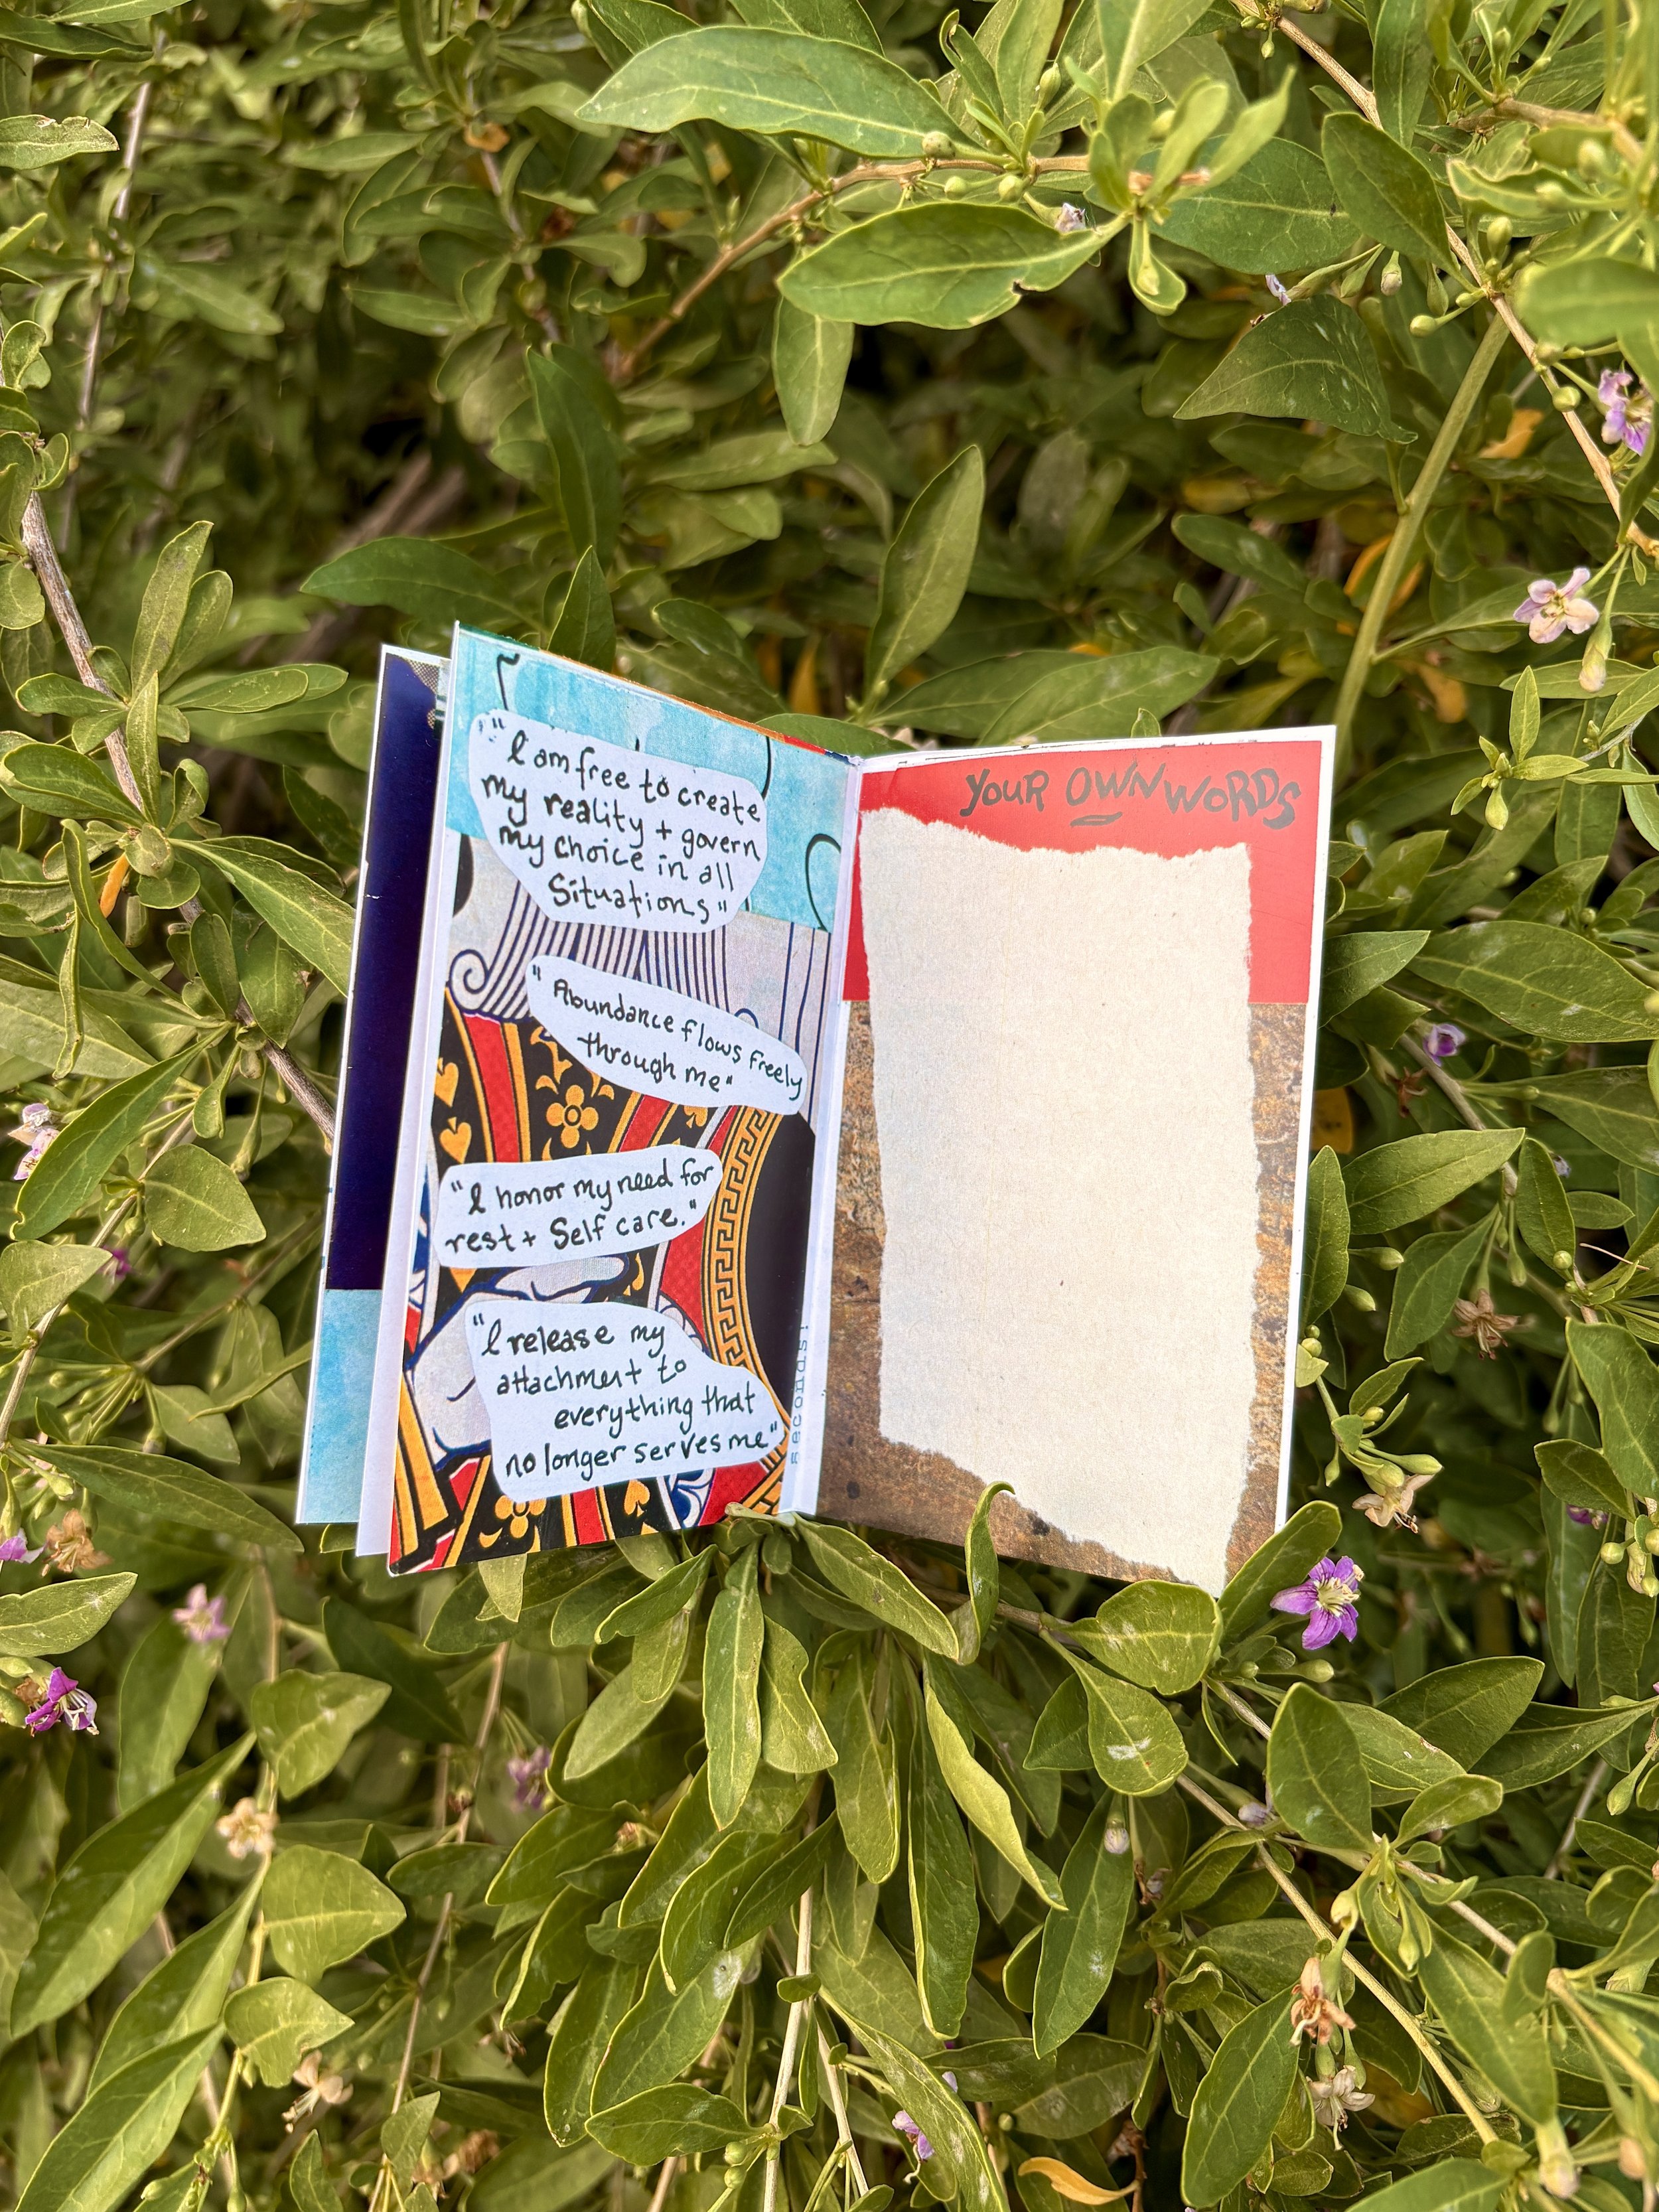 "I am free to create
my reality + govern
my choice in all
Situations"
"Abundance flows freely
through me"
"I honor my need for
rest + Self care."
"I release my
attachment to
everything that
no longer serves me"
seconds!
YOUR OWN WORDS